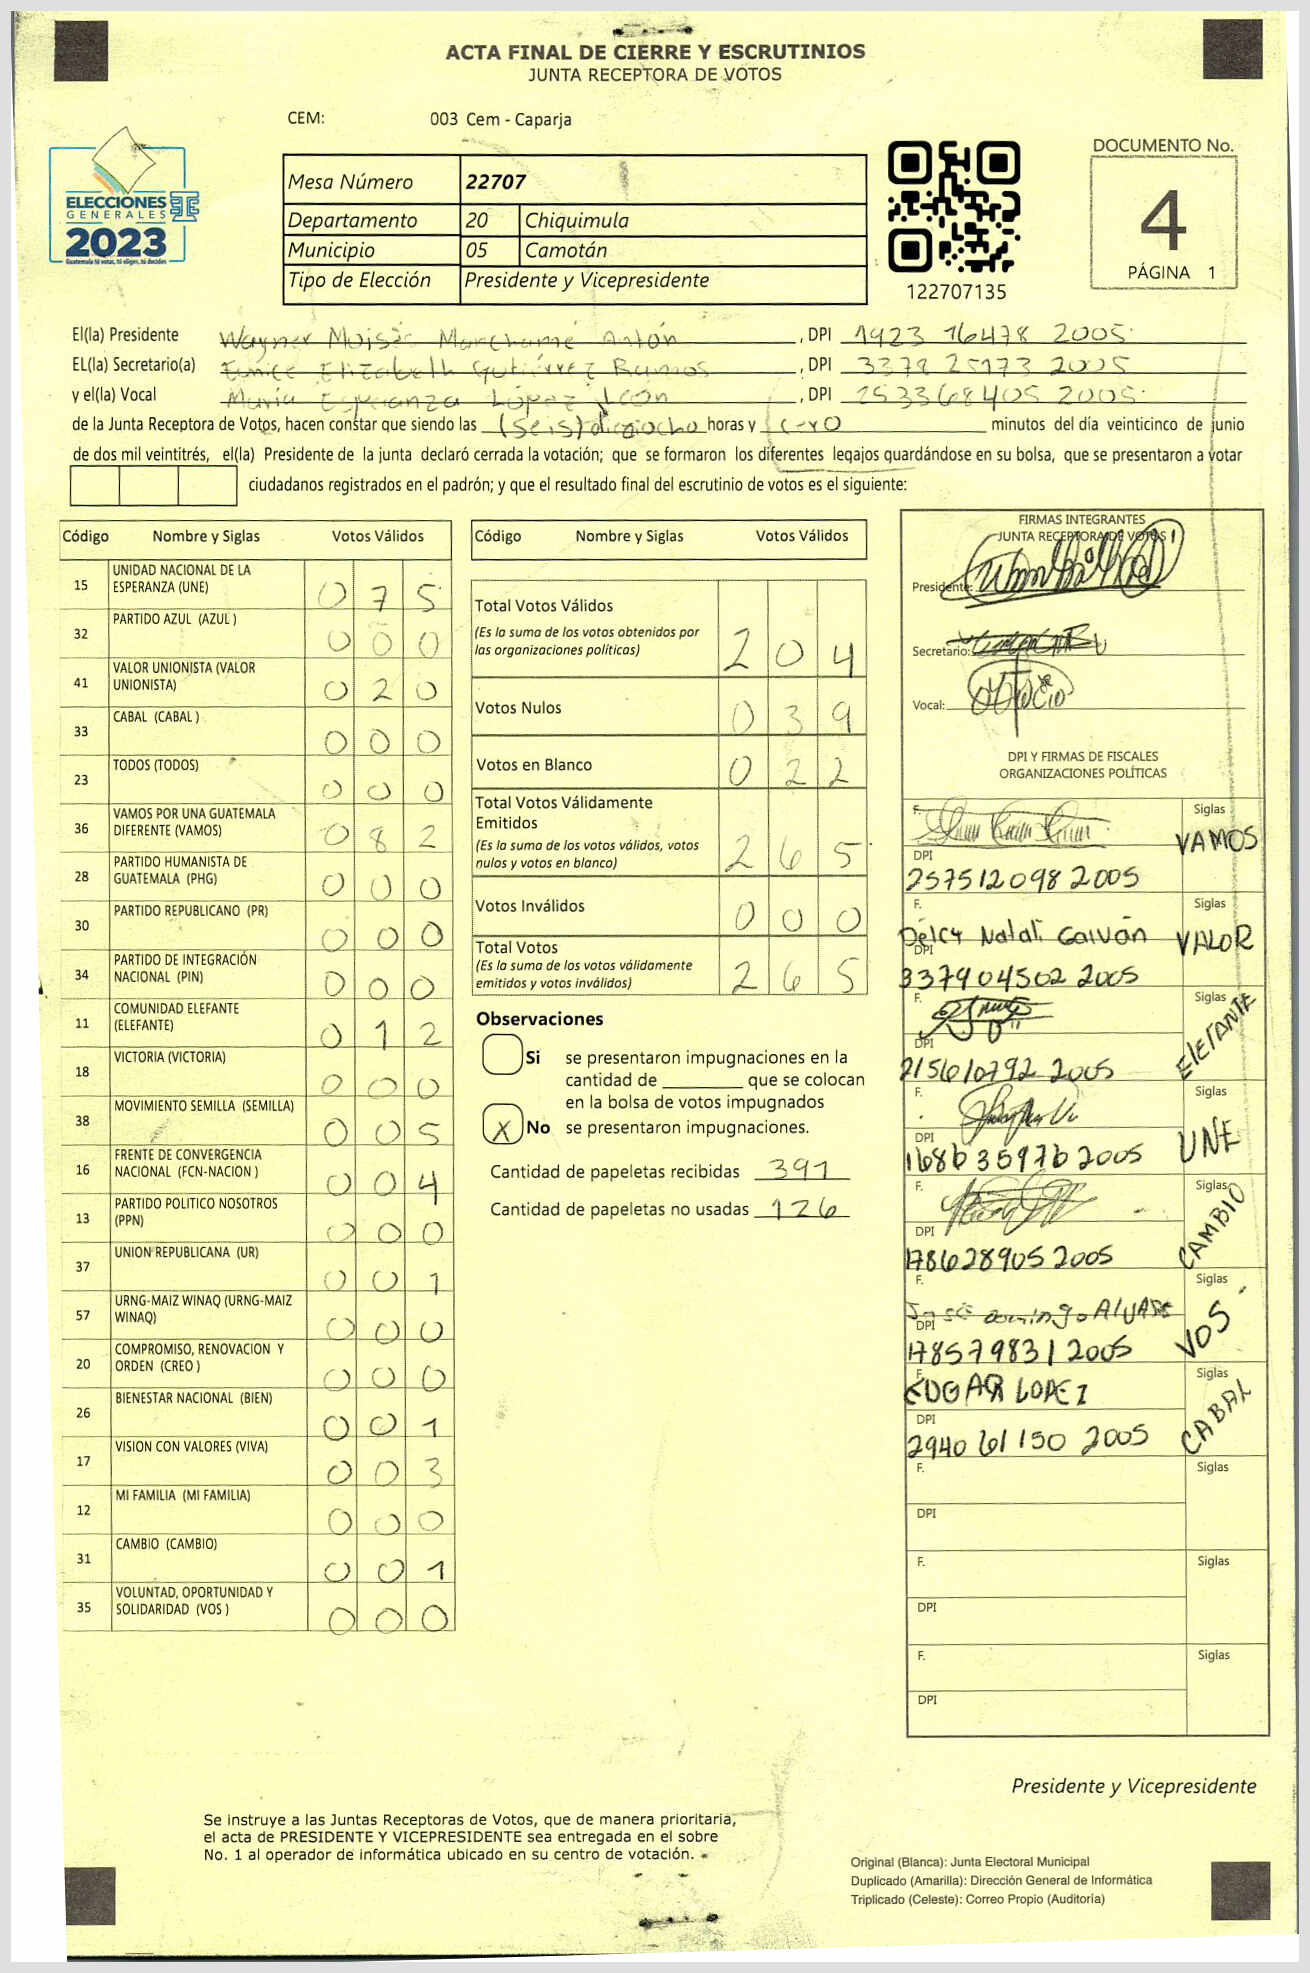 ACTA FINAL DE CIERRE Y ESCRUTINIOS
JUNTA RECEPTORA DE VOTOS
CEM: 003 Cem - Caparja
ELECCIONES
GENERALES
2023
Guatemala tú votas, tú eliges, tú decides
Mesa Número 22707
Departamento 20 Chiquimula
Municipio 05 Camotán
Tipo de Elección Presidente y Vicepresidente
122707135
DOCUMENTO No.
4
PÁGINA 1
El(la) Presidente Wagner Moisés Marchamé Antón, DPI 1923 16478 2005
EL(la) Secretario(a) Eunice Elizabeth Gutiérrez Ramos, DPI 3378 25173 2005
y el(la) Vocal María Esperanza López León, DPI 253368405 2005
de la Junta Receptora de Votos, hacen constar que siendo las (seis) dieciocho horas y cero minutos del día veinticinco de junio
de dos mil veintitrés, el(la) Presidente de la junta declaró cerrada la votación; que se formaron los diferentes legajos guardándose en su bolsa, que se presentaron a votar
ciudadanos registrados en el padrón; y que el resultado final del escrutinio de votos es el siguiente:
Código Nombre y Siglas Votos Válidos
15 UNIDAD NACIONAL DE LA ESPERANZA (UNE) 0 7 5
32 PARTIDO AZUL (AZUL ) 0 0 0
41 VALOR UNIONISTA (VALOR UNIONISTA) 0 2 0
33 CABAL (CABAL ) 0 0 0
23 TODOS (TODOS) 0 0 0
36 VAMOS POR UNA GUATEMALA DIFERENTE (VAMOS) 0 8 2
28 PARTIDO HUMANISTA DE GUATEMALA (PHG) 0 0 0
30 PARTIDO REPUBLICANO (PR) 0 0 0
34 PARTIDO DE INTEGRACIÓN NACIONAL (PIN) 0 0 0
11 COMUNIDAD ELEFANTE (ELEFANTE) 0 1 2
18 VICTORIA (VICTORIA) 0 0 0
38 MOVIMIENTO SEMILLA (SEMILLA) 0 0 5
16 FRENTE DE CONVERGENCIA NACIONAL (FCN-NACION ) 0 0 4
13 PARTIDO POLITICO NOSOTROS (PPN) 0 0 0
37 UNION REPUBLICANA (UR) 0 0 1
57 URNG-MAIZ WINAQ (URNG-MAIZ WINAQ) 0 0 0
20 COMPROMISO, RENOVACION Y ORDEN (CREO ) 0 0 0
26 BIENESTAR NACIONAL (BIEN) 0 0 1
17 VISION CON VALORES (VIVA) 0 0 3
12 MI FAMILIA (MI FAMILIA) 0 0 0
31 CAMBIO (CAMBIO) 0 0 1
35 VOLUNTAD, OPORTUNIDAD Y SOLIDARIDAD (VOS ) 0 0 0
Código Nombre y Siglas Votos Válidos
Total Votos Válidos
(Es la suma de los votos obtenidos por
las organizaciones políticas) 2 0 4
Votos Nulos 0 3 9
Votos en Blanco 0 2 2
Total Votos Válidamente
Emitidos
(Es la suma de los votos válidos, votos
nulos y votos en blanco) 2 6 5
Votos Inválidos 0 0 0
Total Votos
(Es la suma de los votos válidamente
emitidos y votos inválidos) 2 6 5
Observaciones
Si se presentaron impugnaciones en la
cantidad de ________ que se colocan
en la bolsa de votos impugnados
X No se presentaron impugnaciones.
Cantidad de papeletas recibidas 391
Cantidad de papeletas no usadas 126
FIRMAS INTEGRANTES
JUNTA RECEPTORA DE VOTOS
Presidente:
Secretario:
Vocal:
DPI Y FIRMAS DE FISCALES
ORGANIZACIONES POLÍTICAS
F. Siglas VAMOS
DPI 257512098 2005
F. Delcy Natali Galván Siglas VALOR
DPI 337904502 2005
F. Siglas ELEFANTE
DPI 215610792 2005
F. Siglas UNE
DPI 168635976 2005
F. Siglas CAMBIO
DPI 178628905 2005
F. José Domingo Siglas VOS
DPI 178579831 2005
F. EDGAR LOPEZ Siglas CABAL
DPI 2940 61150 2005
F. Siglas
DPI
F. Siglas
DPI
F. Siglas
DPI
Presidente y Vicepresidente
Se instruye a las Juntas Receptoras de Votos, que de manera prioritaria,
el acta de PRESIDENTE Y VICEPRESIDENTE sea entregada en el sobre
No. 1 al operador de informática ubicado en su centro de votación.
Original (Blanca): Junta Electoral Municipal
Duplicado (Amarilla): Dirección General de Informática
Triplicado (Celeste): Correo Propio (Auditoría)